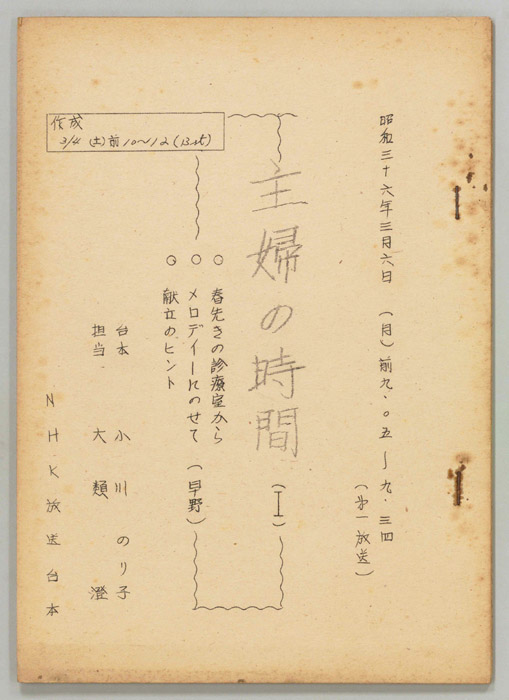 昭和三十六年三月六日 (月) 前九・〇五〜九・三四
(第一放送)
主婦の時間 (I)
○ 春先きの診療室から
○ メロデイーにのせて (早野)
○ 献立のヒント
台本 小川のり子
担当 大類 澄
NHK放送台本
作成
3/4 (土) 前10〜12 (13st)